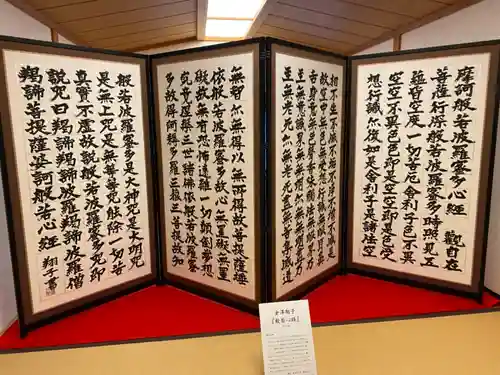 摩訶般若波羅蜜多心経 観自在
菩薩行深般若波羅蜜多時照見五
蘊皆空度一切苦厄舎利子色不異
空空不異色色即是空空即是色受
想行識亦復如是舎利子是諸法空
相不生不滅不垢不浄不増不減
是故空中無色無受想行識無眼耳鼻
舌身意無色声香味触法無眼界乃
至無意識界無無明亦無無明尽乃
至無老死亦無老死尽無苦集滅道
無智亦無得以無所得故菩提薩
埵依般若波羅蜜多故心無罣礙無罣
礙故無有恐怖遠離一切顛倒夢想
究竟涅槃三世諸佛依般若波羅蜜
多故得阿耨多羅三藐三菩提故知
般若波羅蜜多是大神呪是大明呪
是無上呪是無等等呪能除一切苦
真実不虚故説般若波羅蜜多呪即
説呪曰羯諦羯諦波羅羯諦波羅僧
羯諦菩提薩婆訶般若心経 翔子書
金澤翔子
『般若心経』